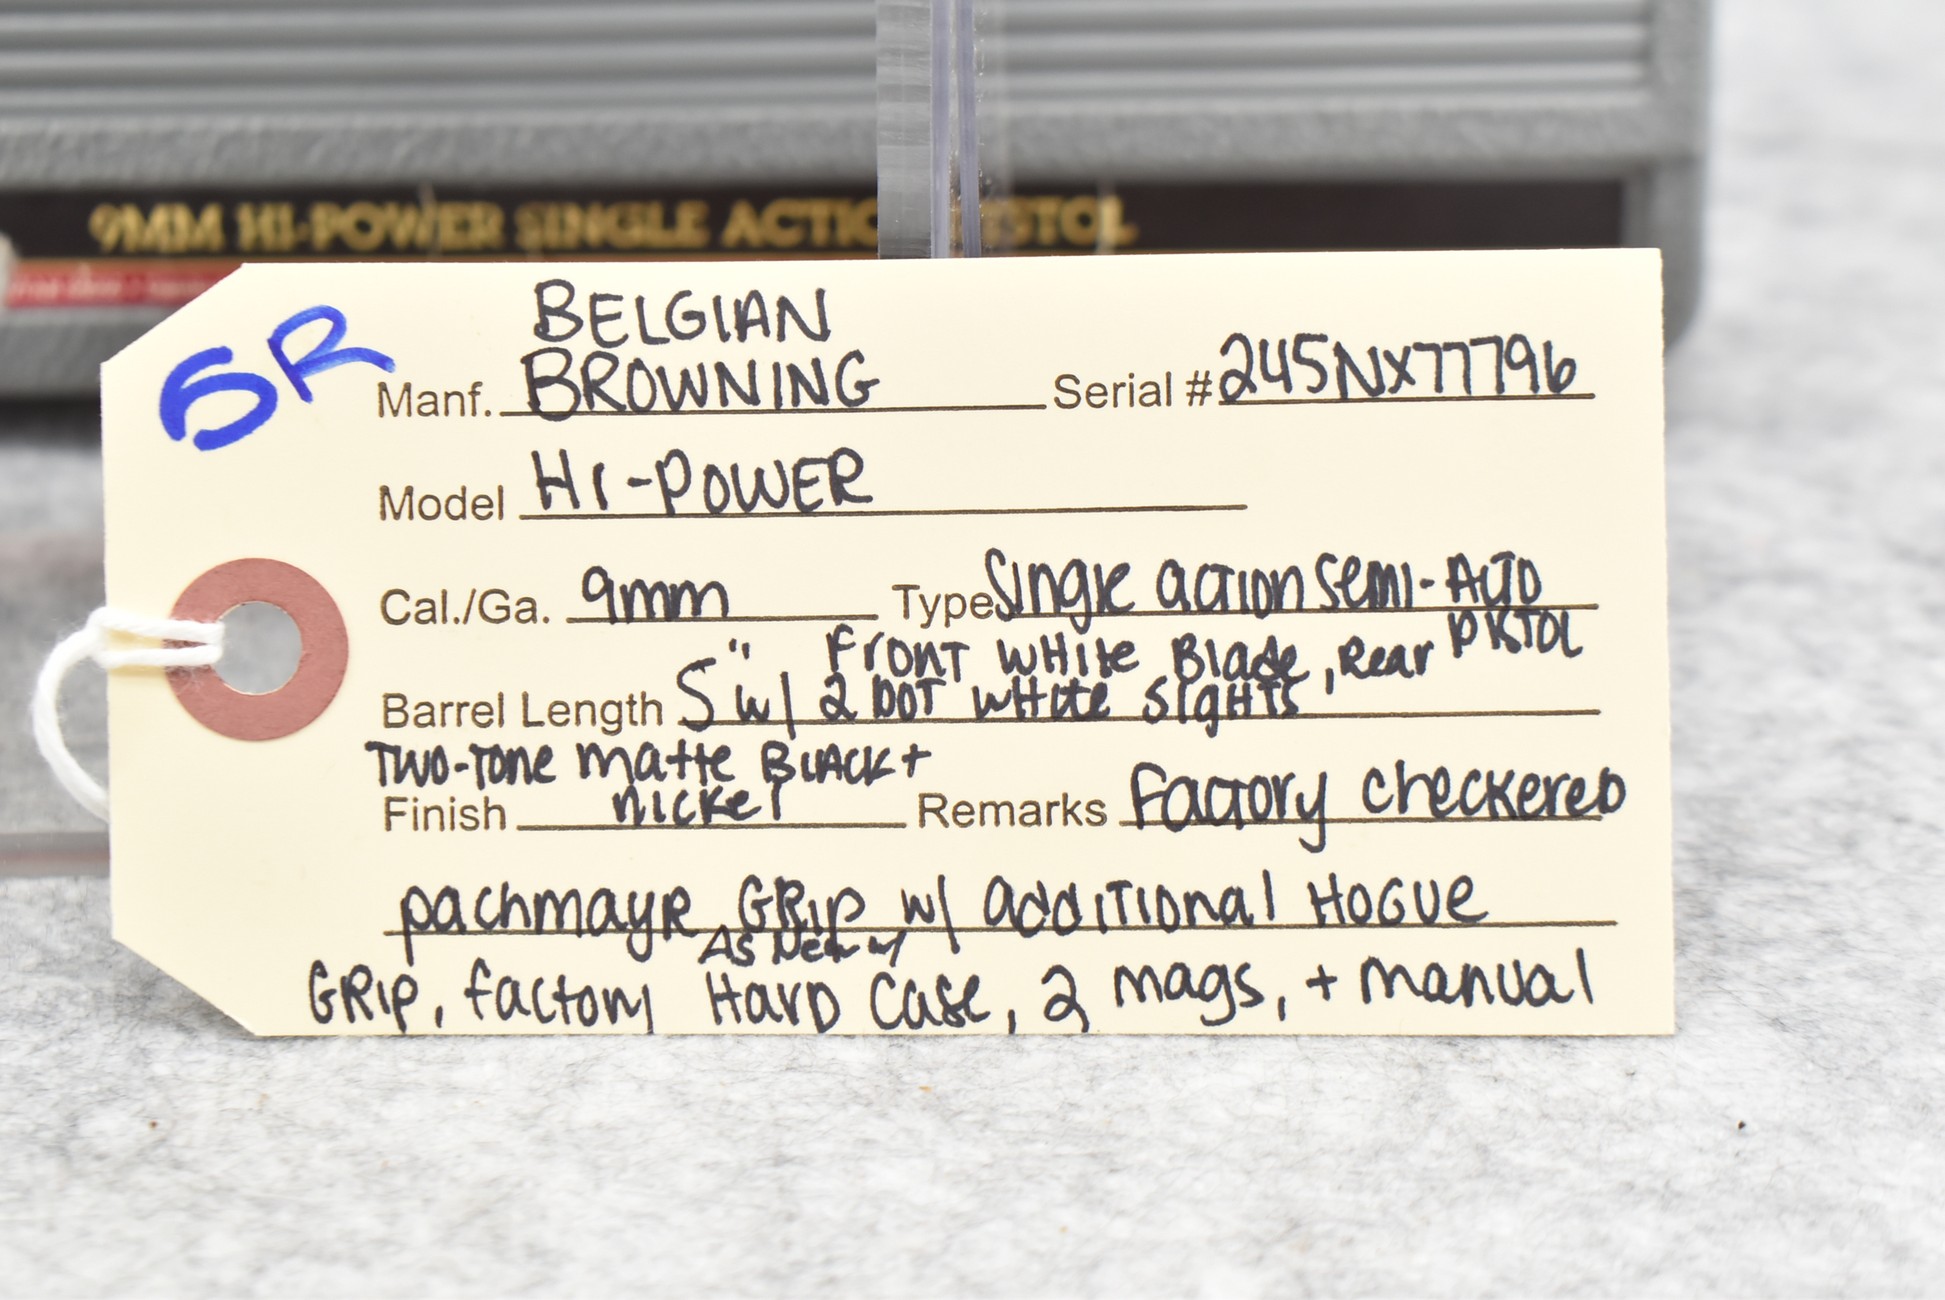 9MM HI-POWER SINGLE ACTION PISTOL
SR
BELGIAN
Manf. BROWNING Serial # 245NX77796
Model HI-POWER
Cal./Ga. 9mm Type Single action semi-Auto
Pistol
Front white Blade, Rear
Barrel Length 5" w/ 2 DOT white sights
Two-Tone matte Black +
Finish nickel Remarks Factory checkered
pachmayr GRip w/ additional HOGUE
As New w/
GRip, factory Hard Case, 2 mags, + manual